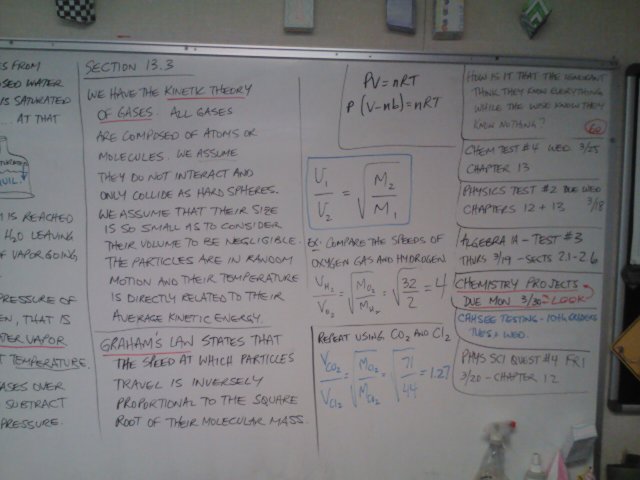 ES FROM
OSED WATER
IS SATURATED
... AT THAT
QUIL.
IS REACHED
H₂O LEAVING
OF VAPOR GOING
PRESSURE OF
EN, THAT IS
ATER VAPOR
T TEMPERATURE.
ASES OVER
SUBTRACT
PRESSURE.
SECTION 13.3
WE HAVE THE KINETIC THEORY
OF GASES. ALL GASES
ARE COMPOSED OF ATOMS OR
MOLECULES. WE ASSUME
THEY DO NOT INTERACT AND
ONLY COLLIDE AS HARD SPHERES.
WE ASSUME THAT THEIR SIZE
IS SO SMALL AS TO CONSIDER
THEIR VOLUME TO BE NEGLIGIBLE.
THE PARTICLES ARE IN RANDOM
MOTION AND THEIR TEMPERATURE
IS DIRECTLY RELATED TO THEIR
AVERAGE KINETIC ENERGY.
GRAHAM'S LAW STATES THAT
THE SPEED AT WHICH PARTICLES
TRAVEL IS INVERSELY
PROPORTIONAL TO THE SQUARE
ROOT OF THEIR MOLECULAR MASS.
PV = nRT
P (V-nb) = nRT
U₁/U₂ = √(M₂/M₁)
EX: COMPARE THE SPEEDS OF
OXYGEN GAS AND HYDROGEN
V_H₂/V_O₂ = √(M_O₂/M_H₂) = √(32/2) = 4
REPEAT USING CO₂ AND Cl₂
V_CO₂/V_Cl₂ = √(M_Cl₂/M_CO₂) = √(71/44) = 1.27
HOW IS IT THAT THE IGNORANT
THINK THEY KNOW EVERYTHING
WHILE THE WISE KNOW THEY
KNOW NOTHING?
CHEM TEST #4 WED 3/25
CHAPTER 13
PHYSICS TEST #2 DUE WED
CHAPTERS 12 + 13 3/18
ALGEBRA 1A - TEST #3
THURS 3/19 - SECTS 2.1-2.6
CHEMISTRY PROJECTS
DUE MON 3/30 - LOOK
CAHSEE TESTING - 10TH GRADERS
TUES + WED.
PHYS SCI QUEST #4 FRI
3/20 - CHAPTER 12